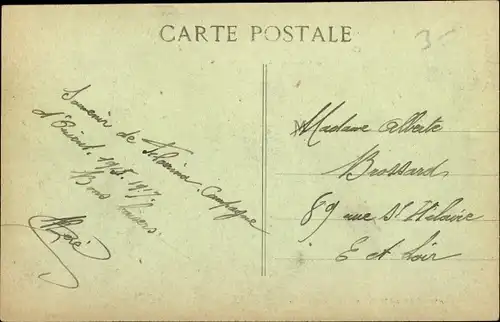 CARTE POSTALE
35
Souvenir de Florina Campagne
d'Orient. 1915. 1917,
Bons baisers
Madame Alberte
Brossard
89 rue St Hilaire
E et Loir